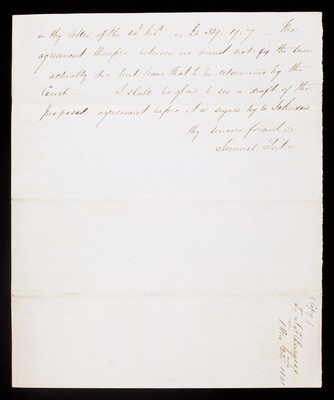 in thy letter of the 14th Inst. is £ 239. 19. 7 — The
agreement therefore between us must not fix the sum
actually due but leave that to be determined by the
Court I shall be glad to see a draft of the
proposed agreement before it is signed by Johnson
thy sincere friend
Samuel
Copy